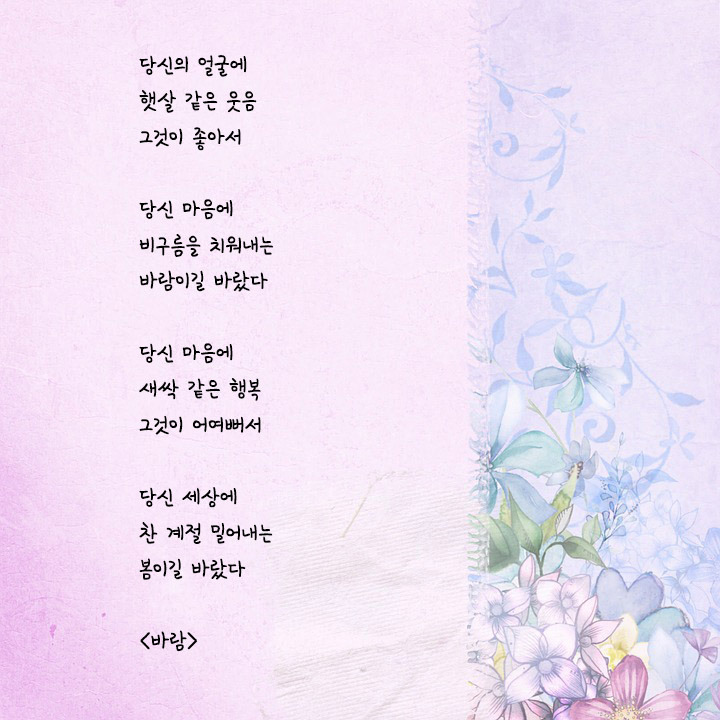 당신의 얼굴에
햇살 같은 웃음
그것이 좋아서
당신 마음에
비구름을 치워내는
바람이길 바랐다
당신 마음에
새싹 같은 행복
그것이 어여뻐서
당신 세상에
찬 계절 밀어내는
봄이길 바랐다
<바람>